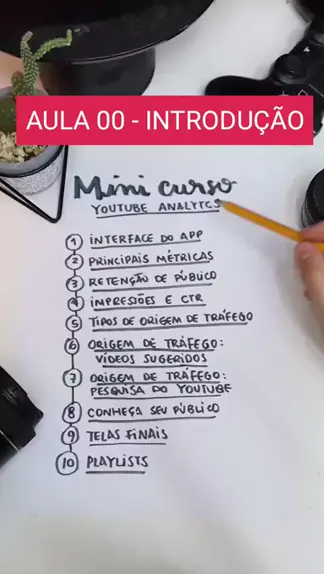 AULA 00 - INTRODUÇÃO
Mini curso
YOUTUBE ANALYTCS
1 INTERFACE DO APP
2 PRINCIPAIS MÉTRICAS
3 RETENÇÃO DE PÚBLICO
4 IMPRESÕES E CTR
5 TIPOS DE ORIGEM DE TRÁFEGO
6 ORIGEM DE TRÁFEGO:
VÍDEOS SUGERIDOS
7 ORIGEM DE TRÁFEGO:
PESQUISA DO YOUTUBE
8 CONHEÇA SEU PÚBLICO
9 TELAS FINAIS
10 PLAYLISTS